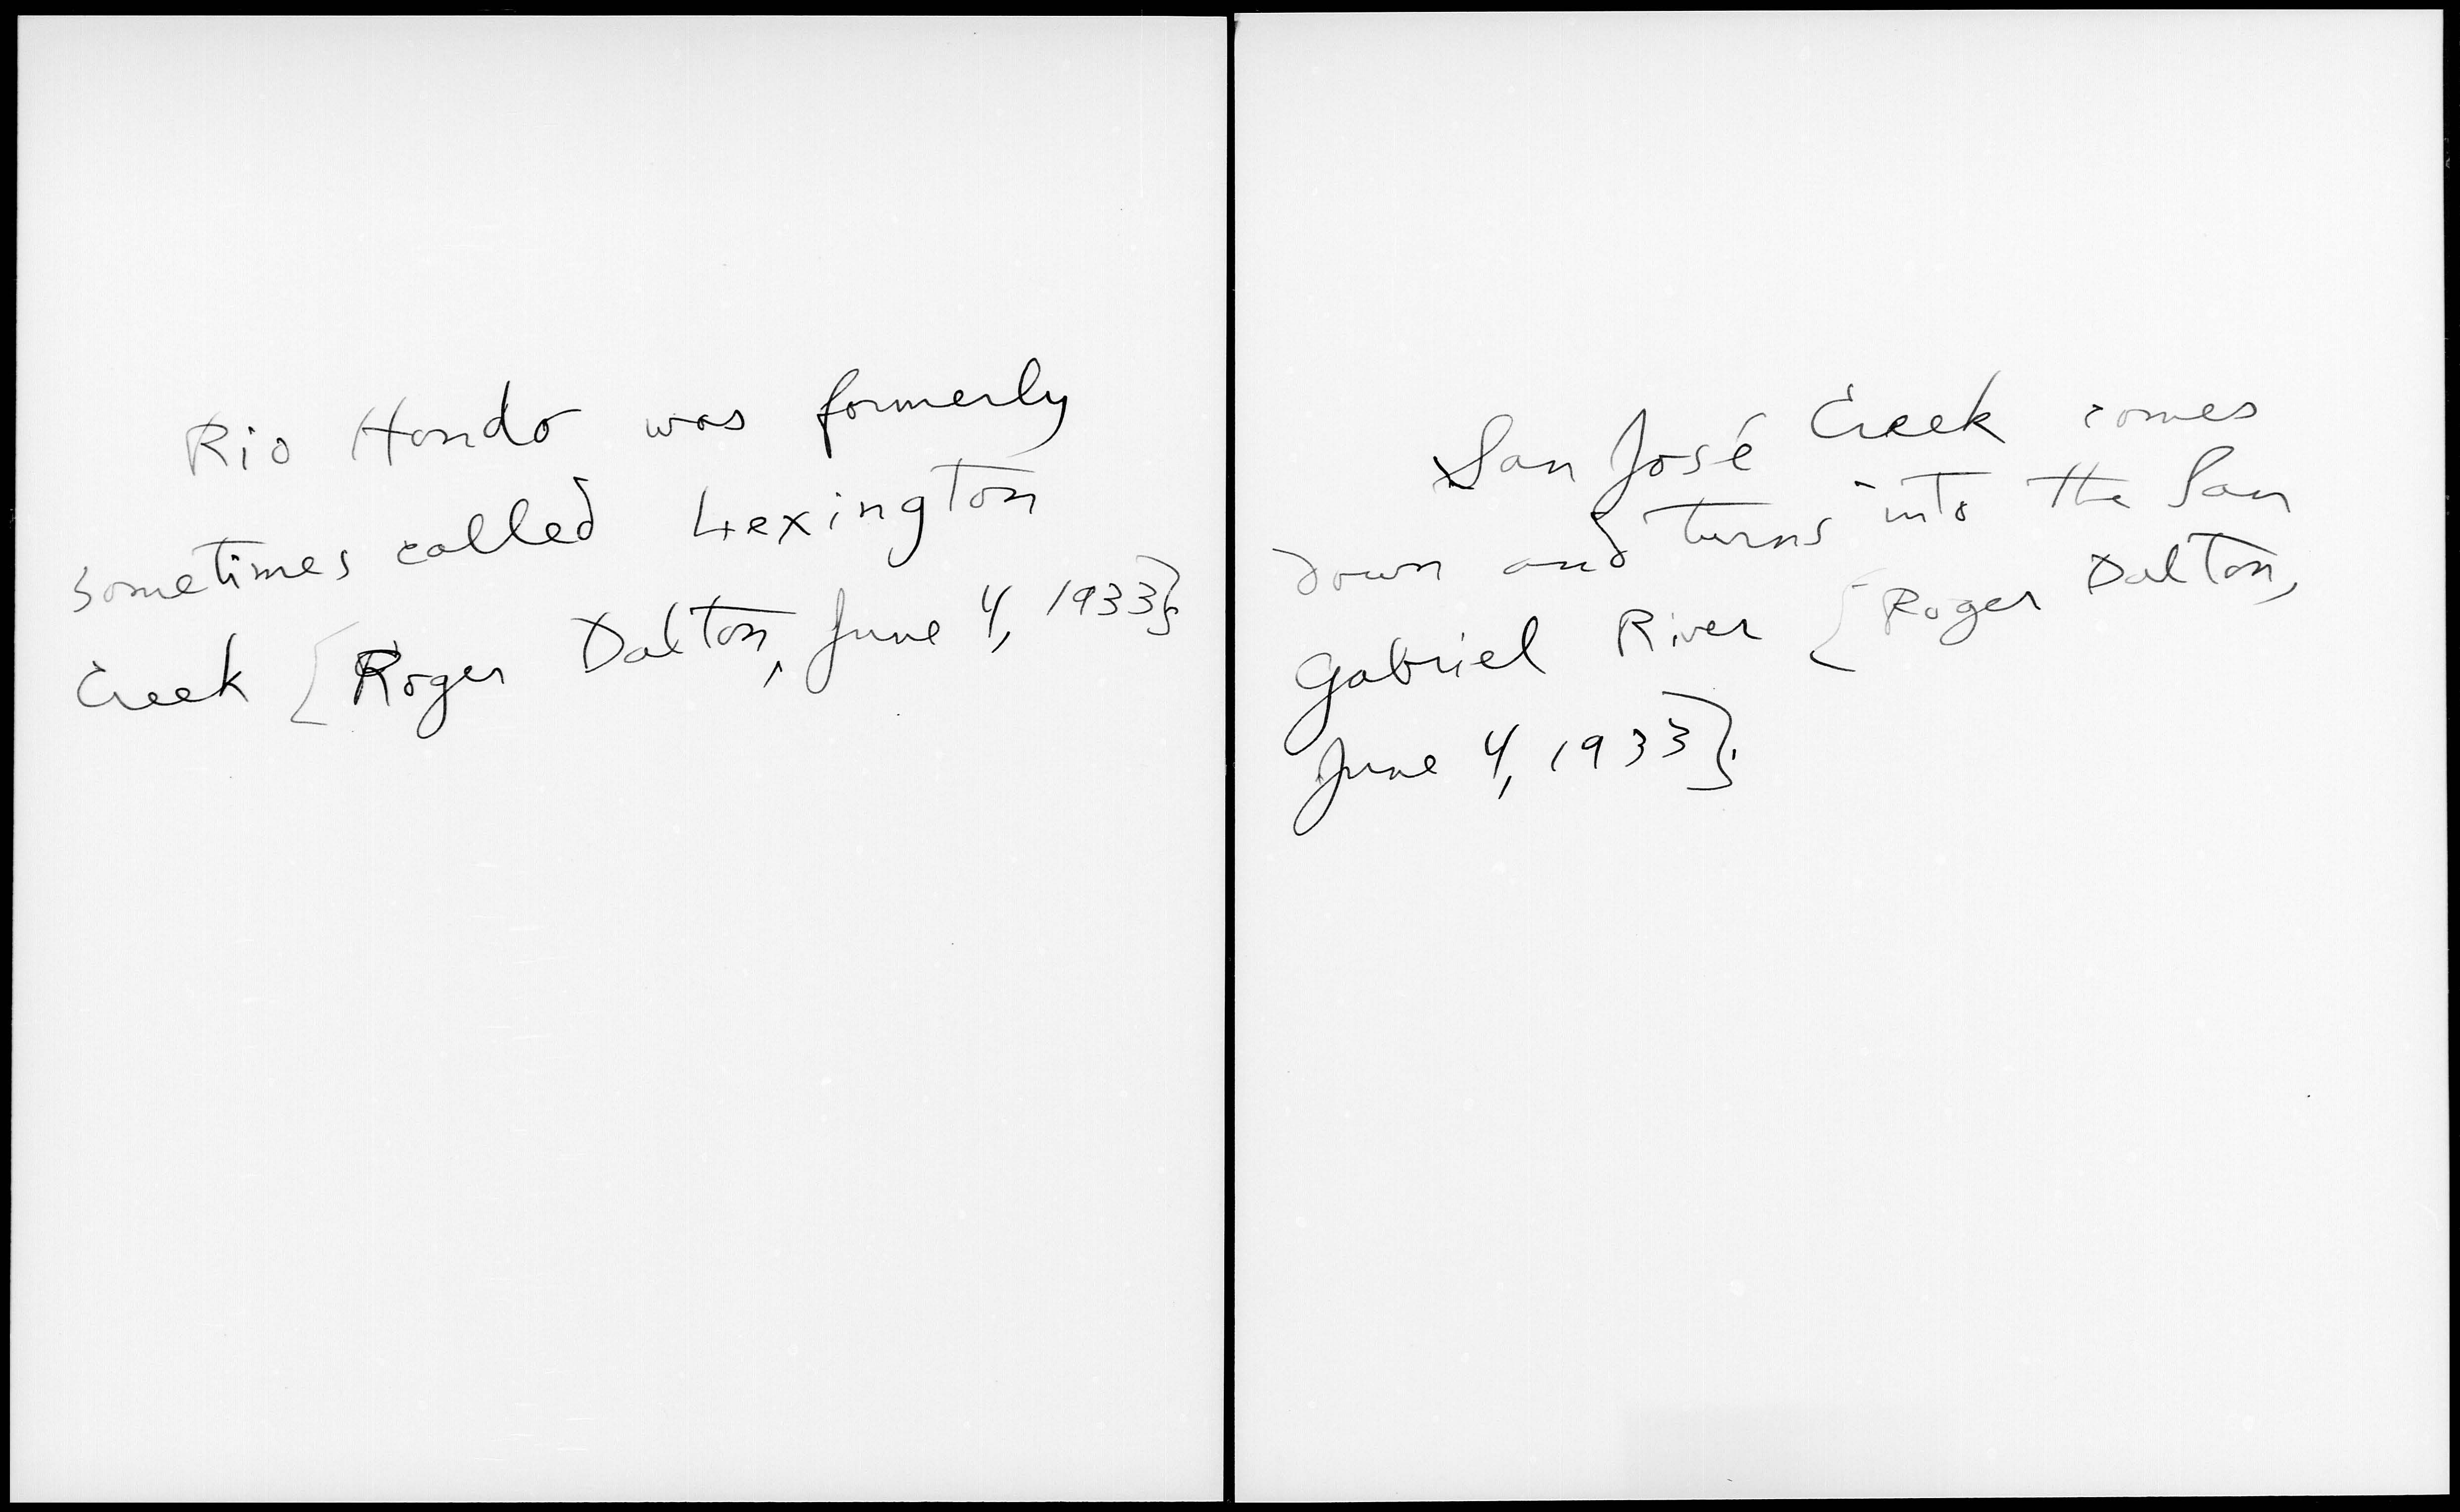 Rio Hondo was formerly
sometimes called Lexington
Creek [Roger Dalton, June 4, 1933};
San José Creek comes
down and turns into the San
Gabriel River [Roger Dalton,
June 4, 1933};